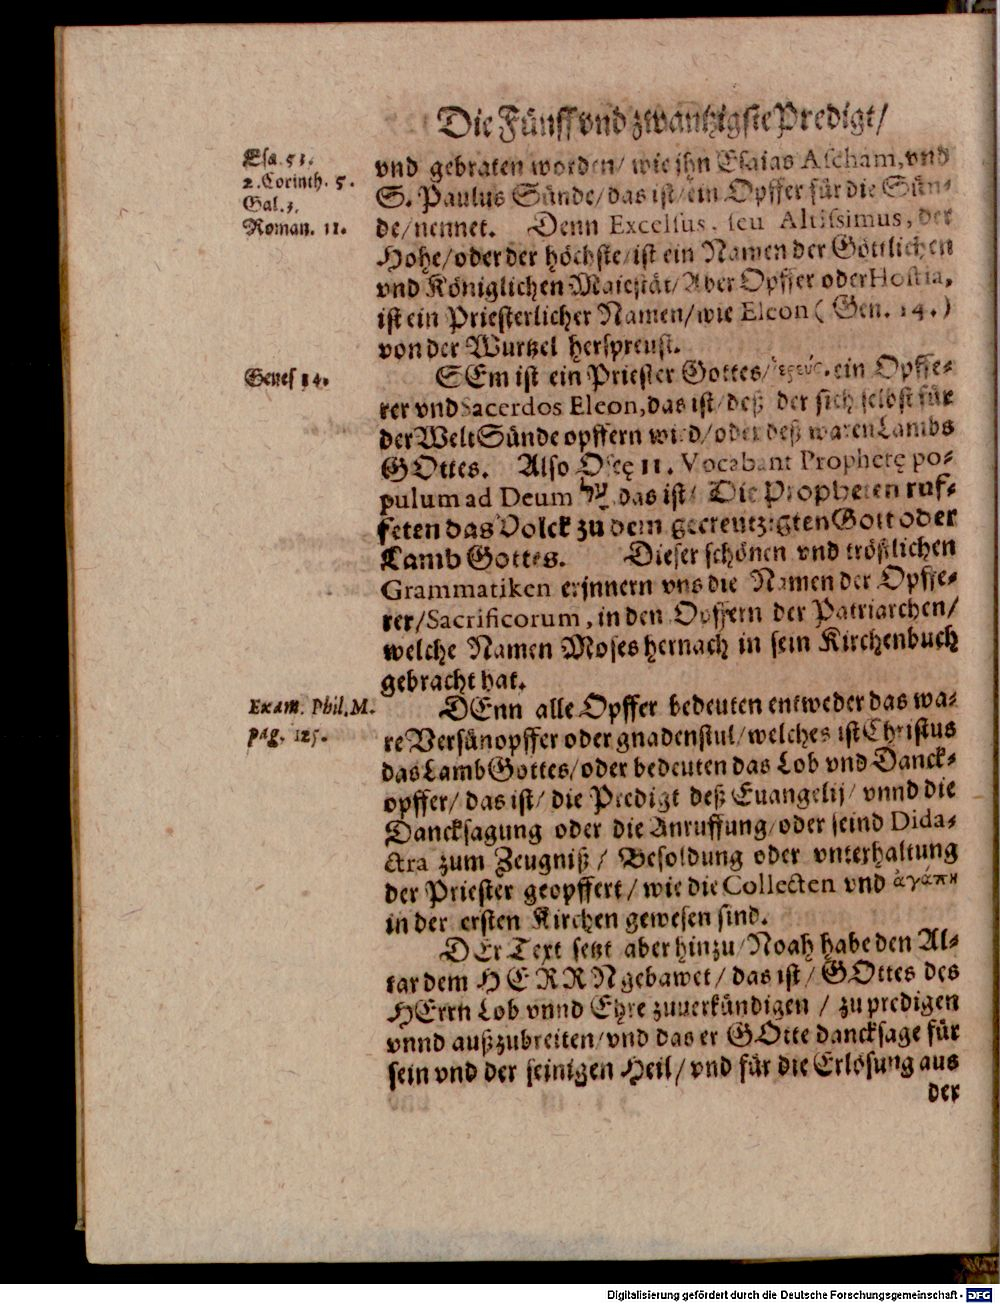 Die Fünff vnd zwantzigste Predigt/
Esa. 53.
2. Corinth. 5.
Gal. 3.
Roman. 11.
vnd gebraten worden/ wie jhn Esaias Ascham, vnd
S. Paulus Sünde/ das ist/ ein Opffer für die Sün-
de/ nennet. Denn Excelsus, seu Altissimus, der
Hohe/ oder der höchste/ ist ein Namen der Göttlichen
vnd Königlichen Maiestät/ Aber Opffer oder Hostia,
ist ein Priesterlicher Namen/ wie Eleon ( Gen. 14. )
von der Wurtzel herspreust.
Genes 14.
SEm ist ein Priester Gottes/ ein Opffe-
rer vnd Sacerdos Eleon, das ist/ deß der sich selbst für
der Welt Sünde opffern wird/ oder deß waren Lambs
GOttes. Also Oseę 11. Vocabant Prophetę po-
pulum ad Deum על, das ist/ Die Propheten ruf-
feten das Volck zu dem gecreutzigten Gott oder
Lamb Gottes. Dieser schönen vnd tröstlichen
Grammatiken erjnnern vns die Namen der Opffe-
rer/ Sacrificorum, in den Opffern der Patriarchen/
welche Namen Moses hernach in sein Kirchenbuch
gebracht hat.
Exam. Phil. M.
pag. 125.
DEnn alle Opffer bedeuten entweder das wa-
re Versünopffer oder gnadenstul/ welches ist Christus
das Lamb Gottes/ oder bedeuten das Lob vnd Danck-
opffer/ das ist/ die Predigt deß Euangelij/ vnnd die
Dancksagung oder die Anruffung/ oder seind Dida-
ctra zum Zeugniß / Besoldung oder vnterhaltung
der Priester geopffert/ wie die Collecten vnd ἀγάπη
in der ersten Kirchen gewesen sind.
DEr Text setzt aber hinzu/ Noah habe den Al-
tar dem HERRN gebawet/ das ist/ GOttes des
HErrn Lob vnnd Ehre zuuerkündigen / zu predigen
vnnd außzubreiten/ vnd das er GOtte dancksage für
sein vnd der seinigen Heil/ vnd für die Erlösung aus
der
Digitalisierung gefördert durch die Deutsche Forschungsgemeinschaft - DFG